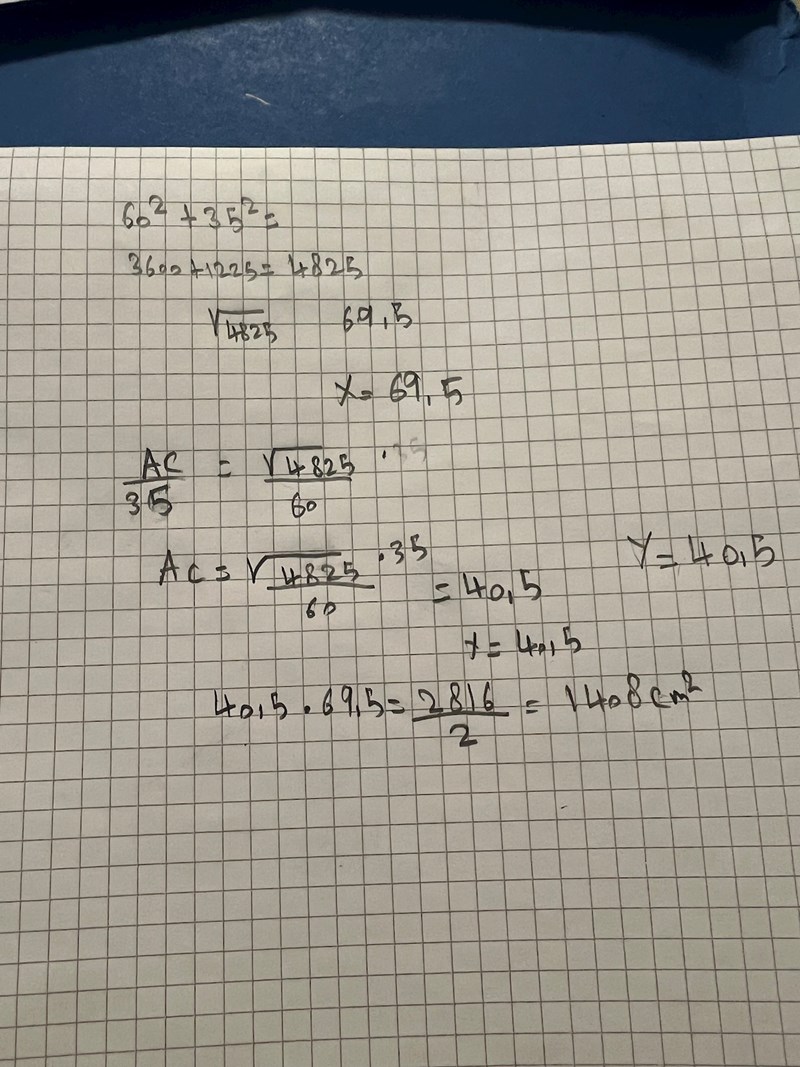 60² + 35² =
3600 + 1225 = 4825
√4825 69,5
x = 69,5
AC/35 = √4825/60 ·
AC = √4825/60 · 35 = 40,5
Y = 40,5
Y = 40,5
40,5 · 69,5 = 2816/2 = 1408 cm²